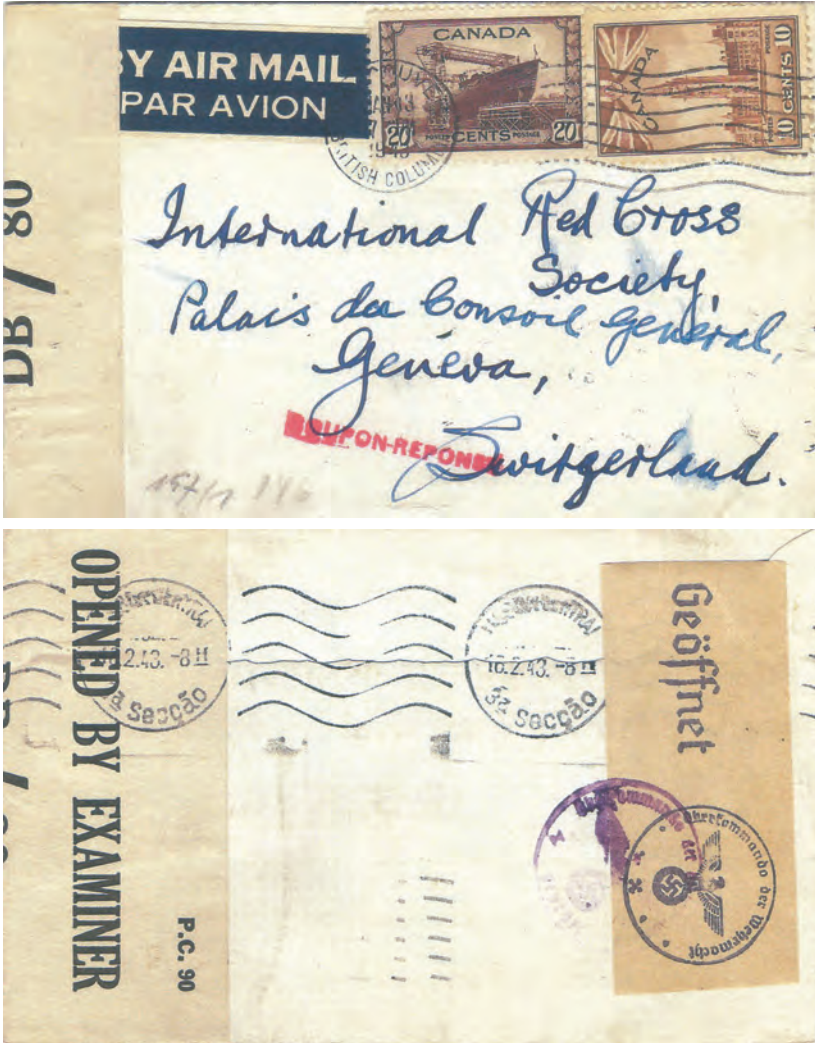 BY AIR MAIL
PAR AVION
CANADA
20 POSTES CENTS POSTAGE 20
CANADA
10 CENTS 10
POSTAGE
BRITISH COLUM
DB / 80
International Red Cross
Society,
Palais du Conseil Général,
Geneva,
Switzerland.
COUPON-REPONSE
OPENED BY EXAMINER
P.C. 90
.2.43.-8
3ª Secção
16.2.43.-8
3ª Secção
Geöffnet
Oberkommando der
Oberkommando der Wehrmacht